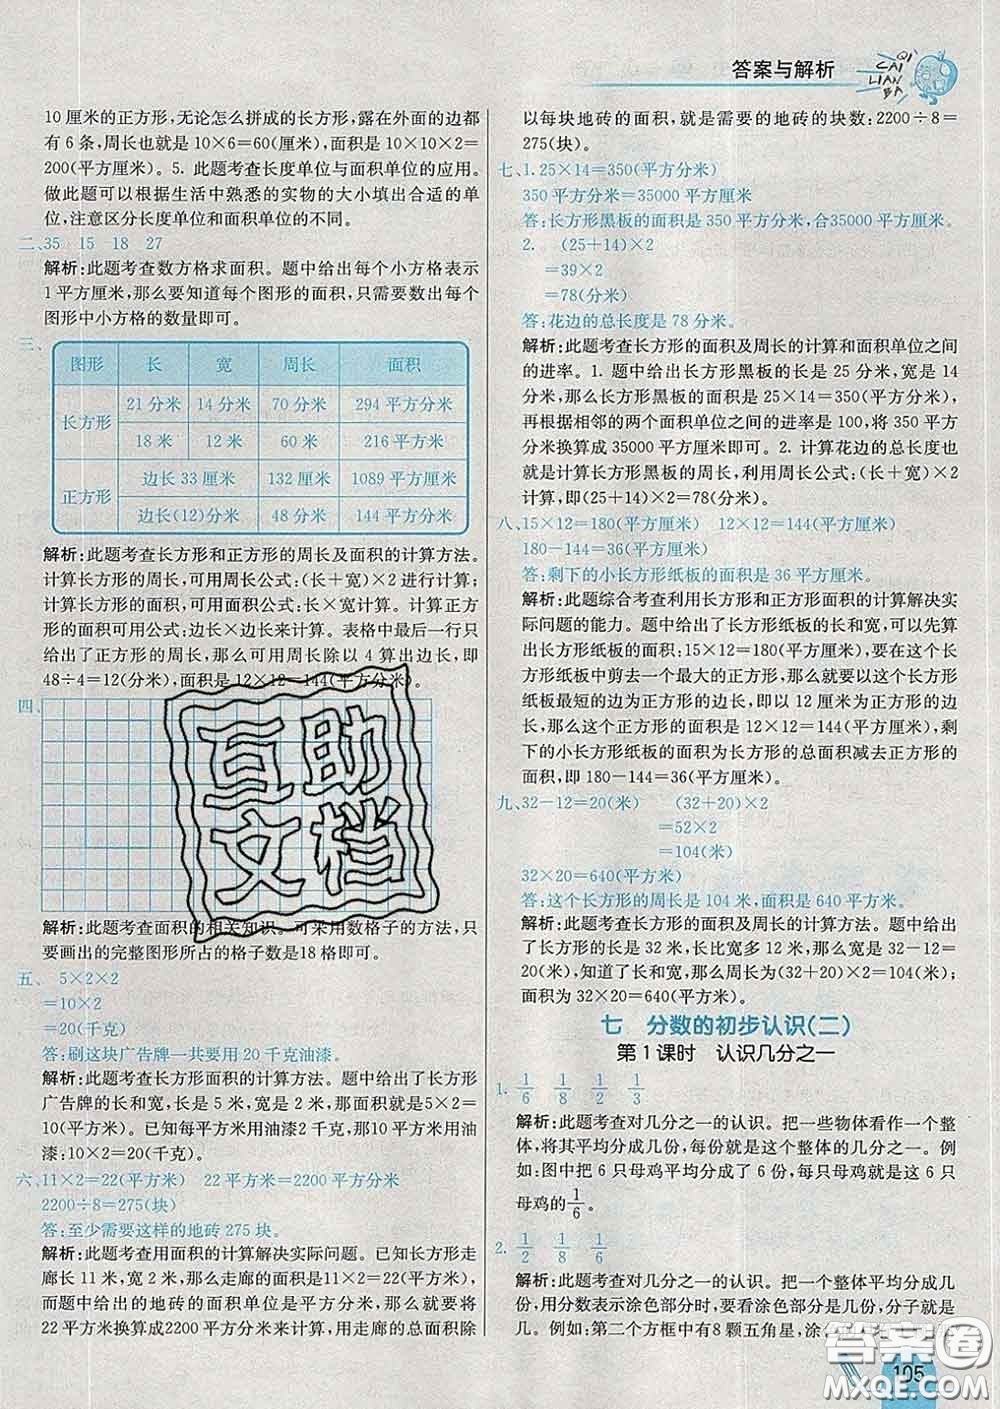 答案与解析
QI
CAI
LIAN
BA
10 厘米的正方形,无论怎么拼成的长方形,露在外面的边都
有 6 条,周长也就是 10×6=60(厘米),面积是 10×10×2=
200(平方厘米)。5. 此题考查长度单位与面积单位的应用。
做此题可以根据生活中熟悉的实物的大小填出合适的单
位,注意区分长度单位和面积单位的不同。
二、35 15 18 27
解析:此题考查数方格求面积。题中给出每个小方格表示
1 平方厘米,那么要知道每个图形的面积,只需要数出每个
图形中小方格的数量即可。
三、
图形 长 宽 周长 面积
长方形 21 分米 14 分米 70 分米 294 平方分米
18 米 12 米 60 米 216 平方米
正方形 边长 33 厘米 132 厘米 1089 平方厘米
边长(12)分米 48 分米 144 平方分米
解析:此题考查长方形和正方形的周长及面积的计算方法。
计算长方形的周长,可用周长公式:(长+宽)×2 进行计算;
计算长方形的面积,可用公式:长×宽计算。计算正方
形的面积可用公式:边长×边长来计算。表格中最后一行只
给出了正方形的周长,那么可以用周长除以 4 算出边长,即
48÷4=12(分米),面积是 12×12=144(平方分米)。
四、
互助
文档
解析:此题考查面积的相关知识。可采用数格子的方法,只
要画出的完整图形所占的格子数是18 格即可。
五、 5×2×2
=10×2
=20(千克)
答:刷这块广告牌一共要用 20 千克油漆。
解析:此题考查长方形面积的计算方法。题中给出长方形
广告牌的长和宽,长是 5 米,宽是 2 米,那么面积就是5×2=
10(平方米)。已知每平方米用油漆2 千克,那么一共用油
漆:10×2=20(千克)。
六、11×2=22(平方米) 22 平方米=2200 平方分米
2200÷8=275(块)
答:至少需要这样的地砖 275 块。
解析:此题考查用面积的计算解决实际问题。已知长方形走
廊长 11 米,宽 2 米,那么走廊的面积就是11×2=22(平方米),
而题中给出的地砖的面积单位是平方分米,那么就要将 22
平方米换算成2200 平方分米来计算,用走廊的总面积除
以每块地砖的面积,就是需要的地砖的块数:2200÷8=
275(块)。
七、1.25×14=350(平方分米)
350 平方分米=35000 平方厘米
答:长方形黑板的面积是 350 平方分米,合35000 平方厘米。
2. (25+14)×2
=39×2
=78(分米)
答:花边的总长度是 78 分米。
解析:此题考查长方形的面积及周长的计算和面积单位之间
的进率。1. 题中给出长方形黑板的长是 25 分米,宽是 14
分米,那么长方形黑板的面积就是 25×14=350(平方分米),
再根据相邻的两个面积单位之间的进率是 100,将 350 平方
分米换算成 35000 平方厘米即可。2. 计算花边的总长度也
就是计算长方形黑板的周长,利用周长公式:(长+宽)×2
计算,即(25+14)×2=78(分米)。
八、15×12=180(平方厘米) 12×12=144(平方厘米)
180-144=36(平方厘米)
答:剩下的小长方形纸板的面积是 36 平方厘米。
解析:此题综合考查利用长方形和正方形面积的计算解决实
际问题的能力。题中给出了长方形纸板的长和宽,可以先算
出长方形纸板的面积:15×12=180(平方厘米),要从这个长
方形纸板中剪去一个最大的正方形,那么要以这个长方形
纸板最短的边为正方形的边长,即以 12 厘米为正方形的边
长,那么这个正方形的面积是 12×12=144(平方厘米),剩
下的小长方形纸板的面积为长方形的总面积减去正方形的
面积,即 180-144=36(平方厘米)。
九、32-12=20(米) (32+20)×2
=52×2
=104(米)
32×20=640(平方米)
答:这个长方形的周长是 104 米,面积是 640 平方米。
解析:此题考查长方形的面积及周长的计算方法。题中给出
了长方形的长是 32 米,长比宽多 12 米,那么宽为 32-12=
20(米),知道了长和宽,周长为(32+20)×2=104(米);
面积为 32×20=640(平方米)。
七 分数的初步认识(二)
第 1 课时 认识几分之一
1. 1/6 1/8 1/2 1/3
解析:此题考查对几分之一的认识。把一些物体看作一个整
体,将其平均分成几份,每份就是这个整体的几分之一。例
如:图中把 6 只母鸡平均分成了 6 份,每只母鸡就是这 6 只
母鸡的1/6。
2. 1/2 1/8 1/6 1/4
解析:此题考查对几分之一的认识。把一个整体平均分成几
份,用分数表示涂色部分时,要看涂色部分是几份,分子就是
几。例如:第二个方框中有8 颗五角星,涂
答案圈
MXQE.COM
105